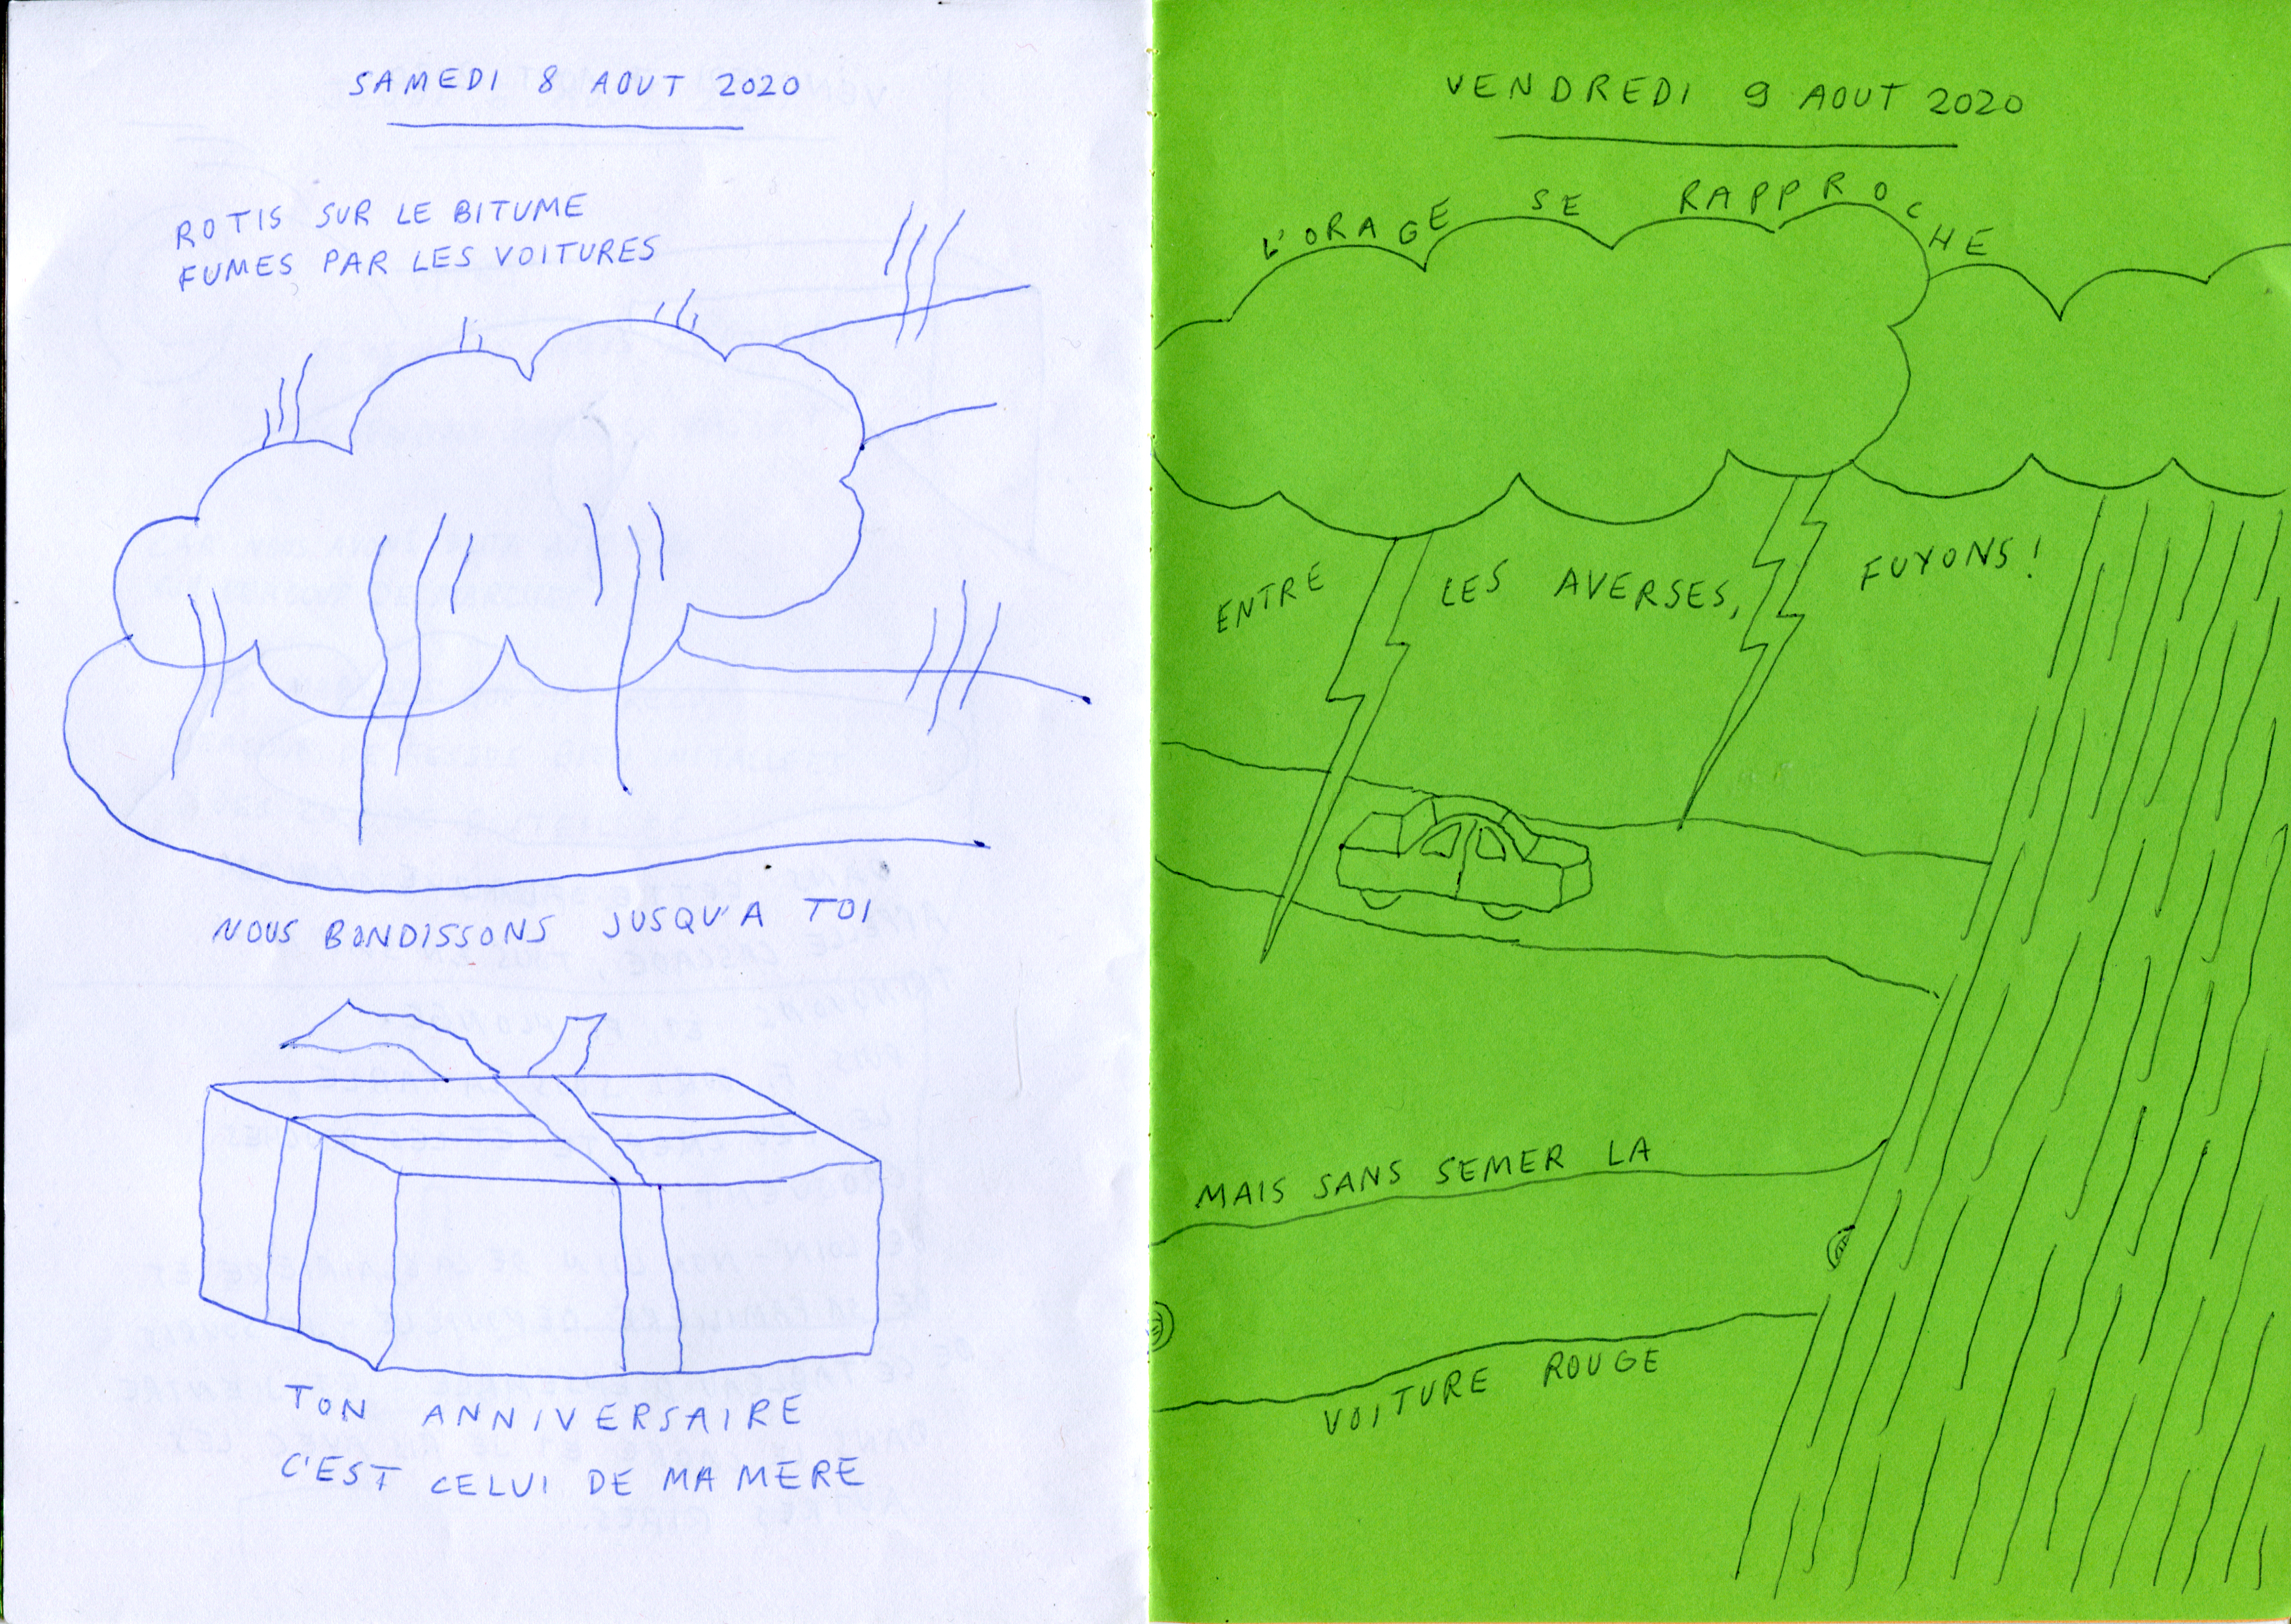 SAMEDI 8 AOUT 2020
ROTIS SUR LE BITUME
FUMES PAR LES VOITURES
NOUS BONDISSONS JUSQU'A TOI
TON ANNIVERSAIRE
C'EST CELUI DE MA MERE
VENDREDI 9 AOUT 2020
L'ORAGE SE RAPPROCHE
ENTRE LES AVERSES, FUYONS!
MAIS SANS SEMER LA
VOITURE ROUGE